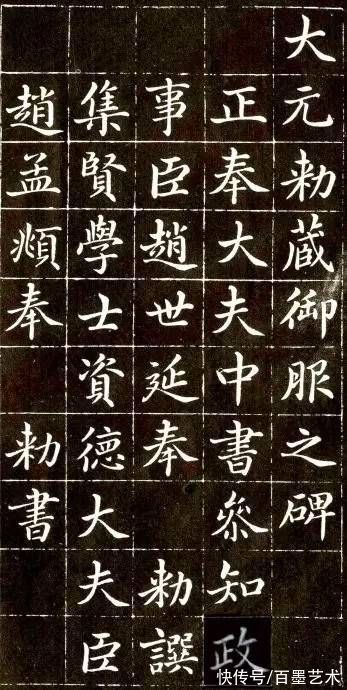 大元勑藏御服之碑
正奉大夫中書叅知政
事臣趙世延奉勑譔
集賢學士資德大夫臣
趙孟頫奉勑書
快传号/百墨艺术